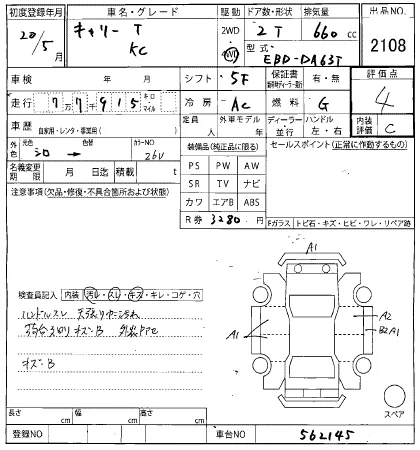 初度登録年月 車名・グレード 駆動 ドア数・形状 排気量 出品NO
20/5月 キャリー T KC 2WD 4WD 2T 660cc 2108
型式 EBD-DA63T
車検 年 月 シフト 5F 保証書 有・無 評価点 4
走行 77千915 キロ・マイル 冷房 AC 燃料 G
車歴 自家用・レンタ・事業用( ) 定員 人 外車モデル ディーラー・並行 ハンドル 左・右 内装評価 C
外色 元色 シロ → 色替 カラーNO 26U 装備品(純正品に限る) セールスポイント(正常に作動するもの)
名義変更期限 月 日迄 積載 t PS PW AW
注意事項(欠品・修復・不具合箇所および状態) SR TV ナビ
カワ エアB ABS
R券 3280 円 Fガラス トビ石・キズ・ヒビ・ワレ・リペア跡
A1
検査員記入 内装 汚レ・スレ・キズ・キレ・コゲ・穴
ハンドルスレ 天張り
A1 A1 A2 B2A1
キズ・B
スペア
長さ cm 幅 cm 高さ cm
登録NO 車台NO 562145